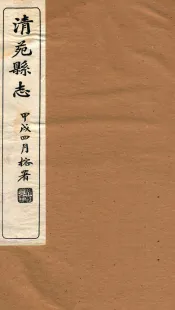 清苑縣志
甲戌四月
署